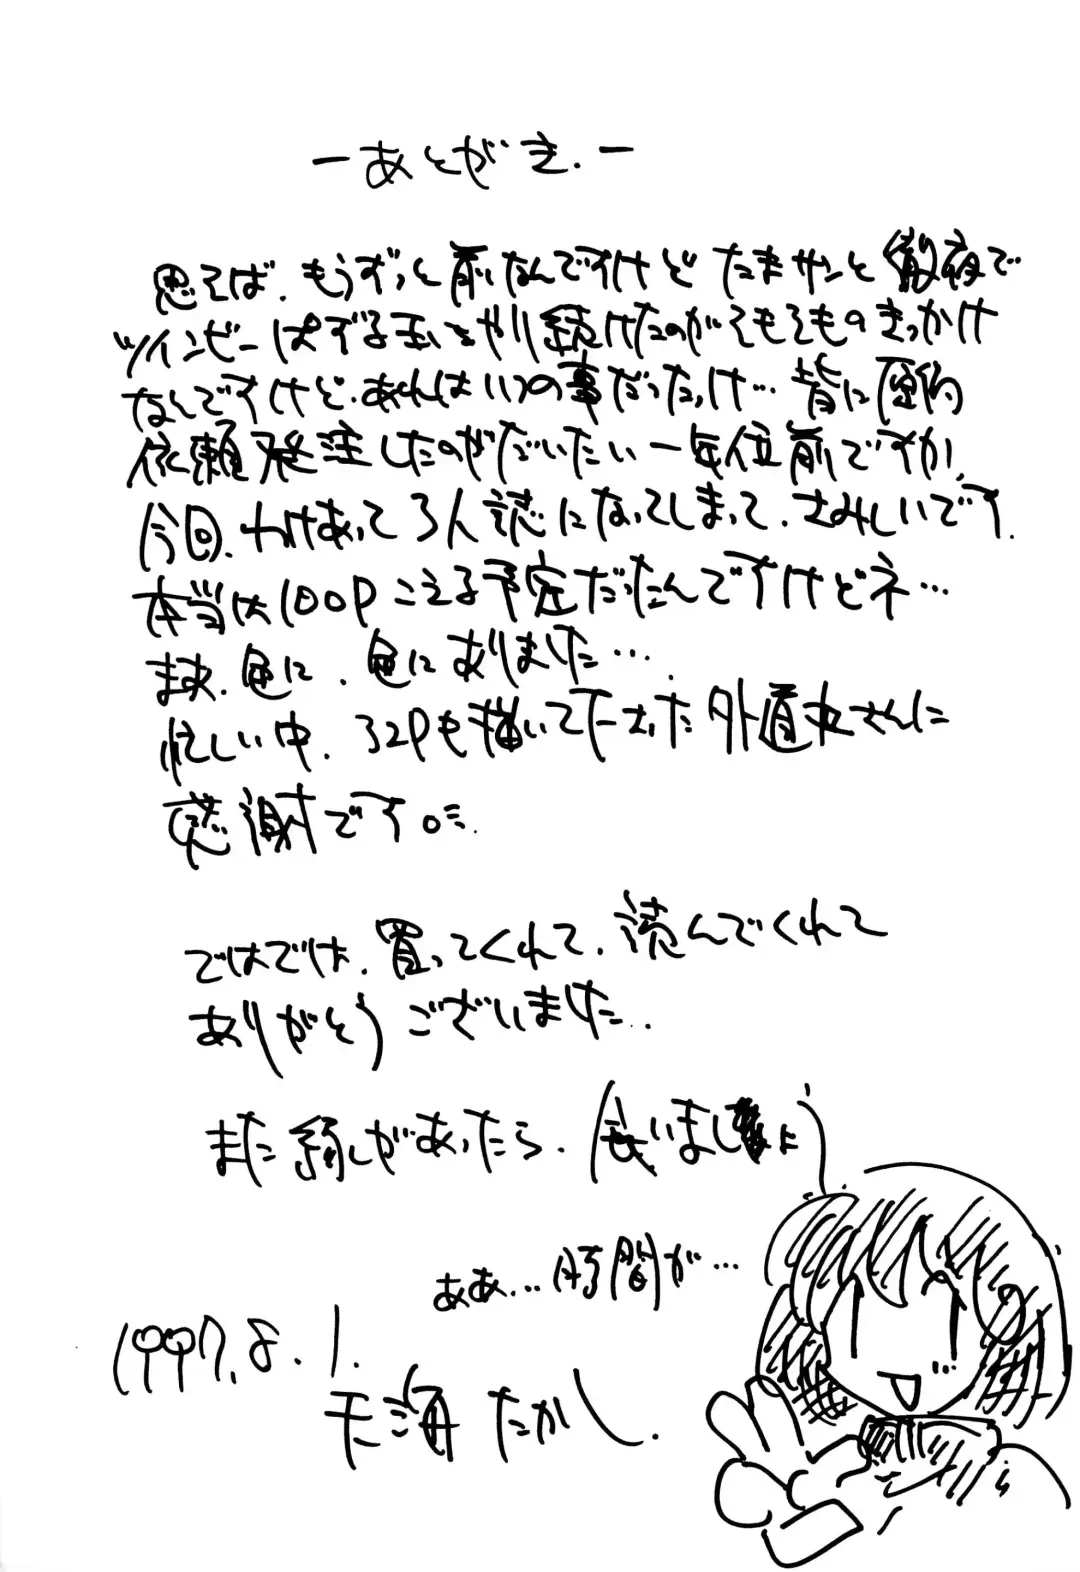 ーあとがき.ー
思えば、もうずっと前なんですけど たまサンと徹夜で
ツインビーぱずる玉をやり続けたのがそもそものきっかけ
なんですけど、あれはいつの事だったっけ… 皆に原稿
依頼発注したのがだいたい一年位前ですか、
今回、わけあって3人誌になってしまって、さみしいです.
本当は100Pこえる予定だったんですけどネ…
まあ、色に、色にありました….
忙しい中、32Pも描いて下さった外道丸さんに
感謝です。
ではでは、買ってくれて、読んでくれて
ありがとうございました..
また縁があったら、会いましょう
ああ…時間が…
1997.8.1.
天海たかし.